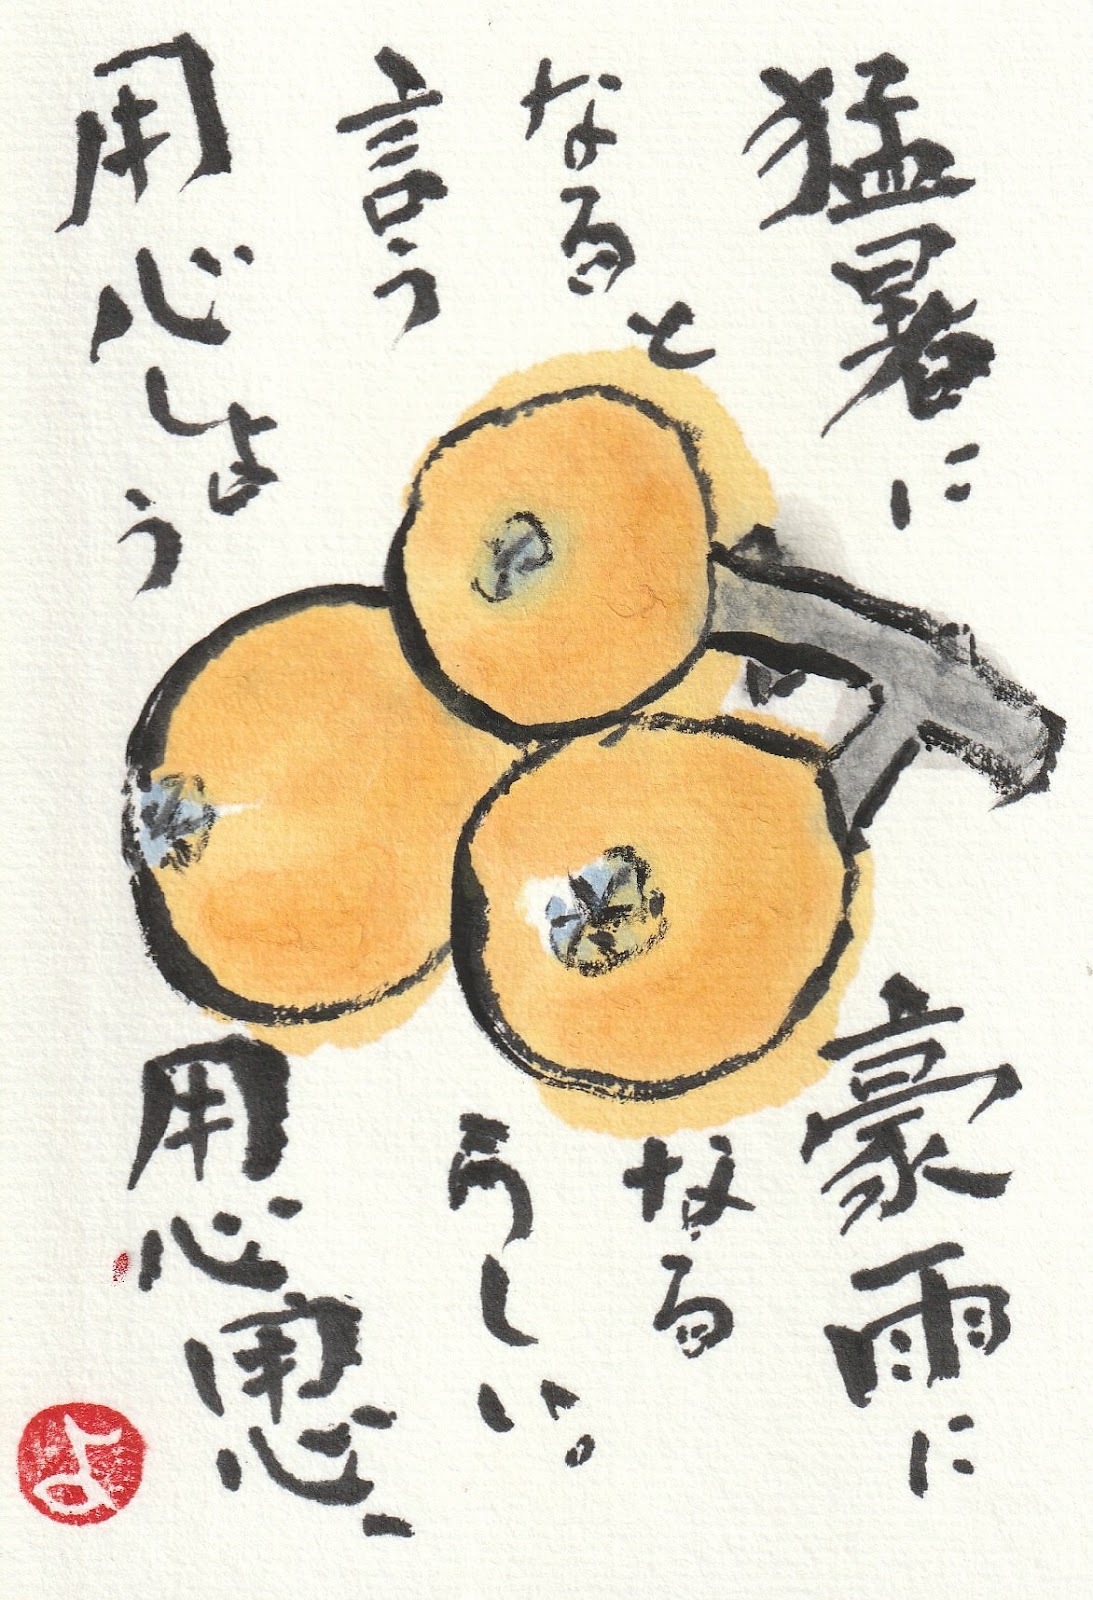 猛暑に
なると
言う
用心しよう
豪雨に
なる
らしい。
用心用心、
よ